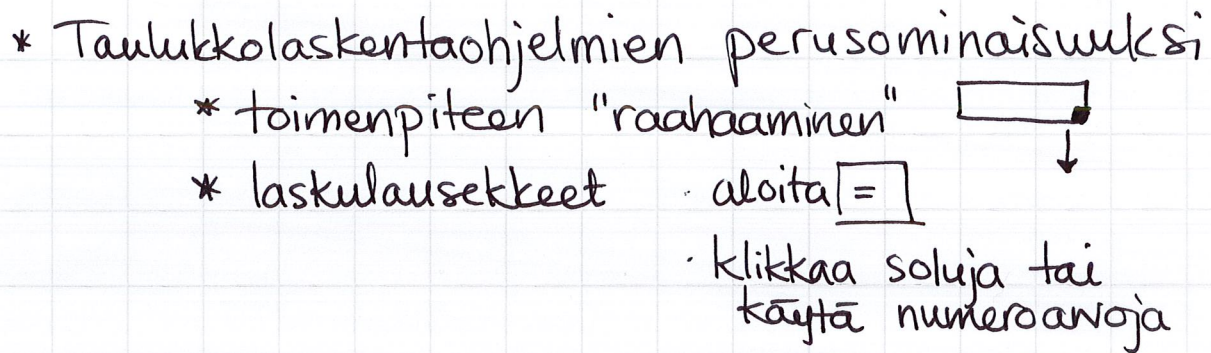 * Taulukkolaskentaohjelmien perusominaisuuksi
* toimenpiteen "raahaaminen"
* laskulausekkeet · aloita =
· klikkaa soluja tai
käytä numeroarvoja